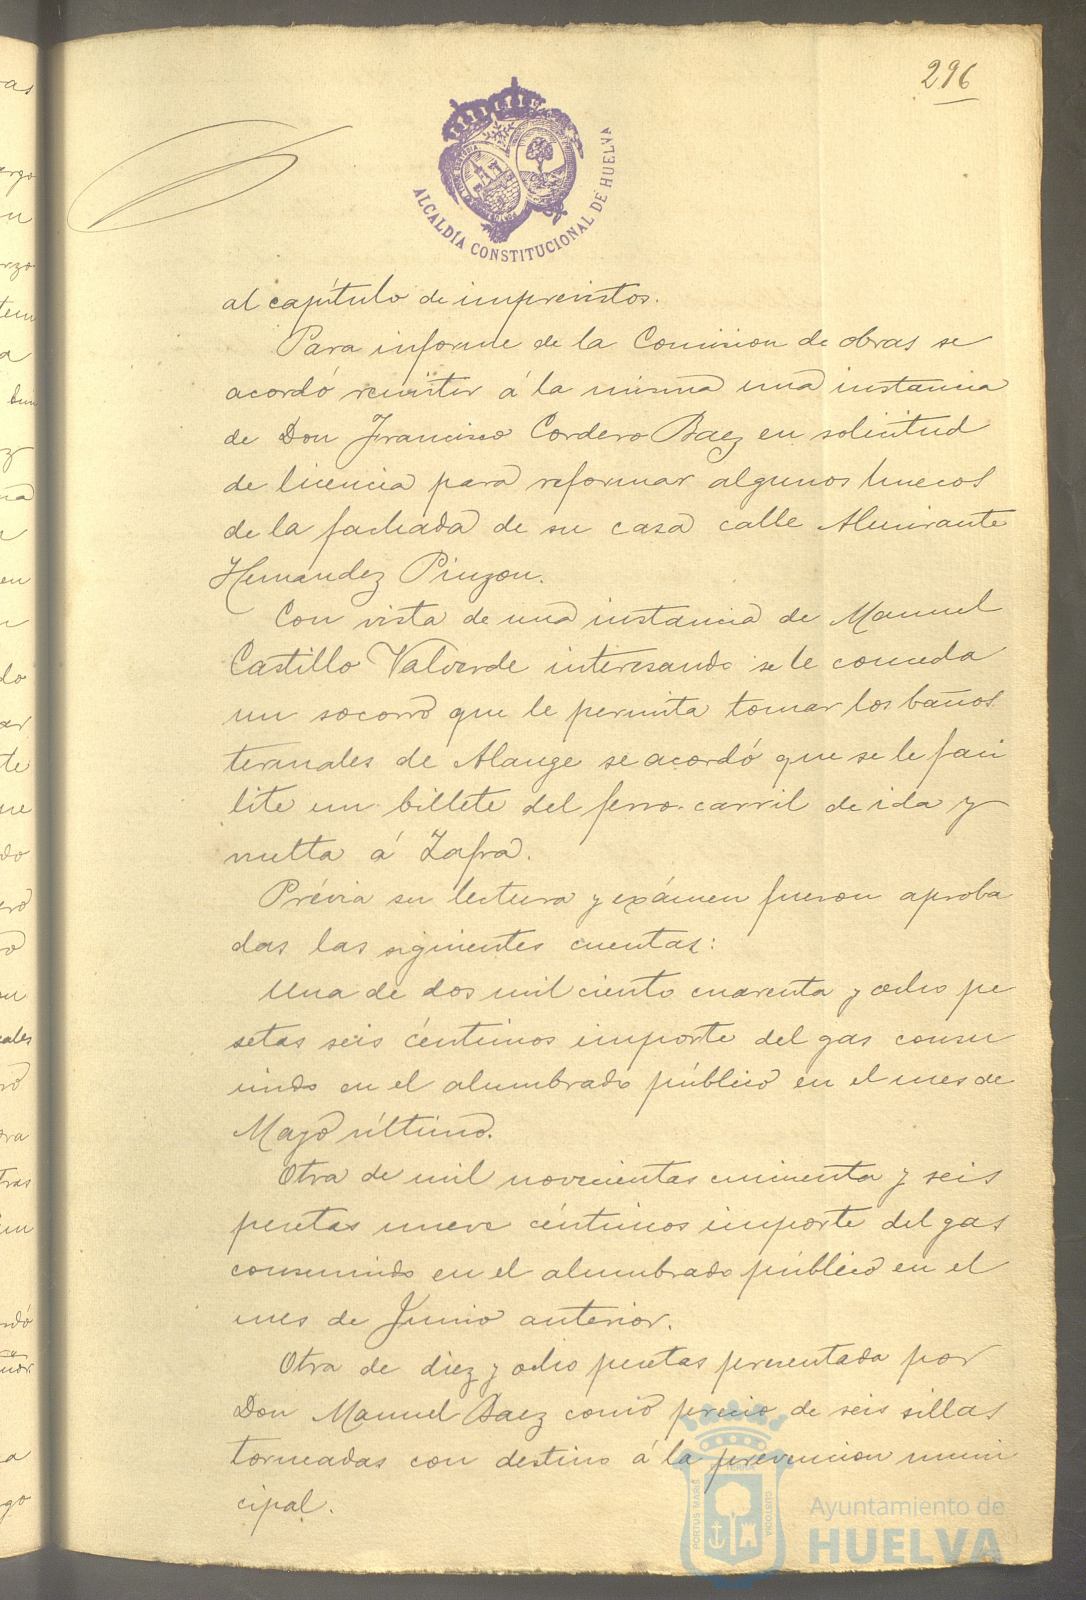 296
ALCALDÍA CONSTITUCIONAL DE HUELVA
al capítulo de imprevistos.
Para informe de la Comision de obras se
acordó remitir á la misma una instancia
de Don Francisco Cordero Baez en solicitud
de licencia para reformar algunos huecos
de la fachada de su casa calle Almirante
Hernandez Pinzon.
Con vista de una instancia de Manuel
Castillo Valverde interesando se le conceda
un socorro que le permita tomar los baños
termales de Alange se acordó que se le faci
lite un billete del ferro-carril de ida y
vuelta á Zafra.
Prévia su lectura y exámen fueron aproba
das las siguientes cuentas:
Una de dos mil ciento cuarenta y ocho pe
setas seis céntimos importe del gas consu
mido en el alumbrado público en el mes de
Mayo último.
Otra de mil novecientas cincuenta y seis
pesetas nueve céntimos importe del gas
consumido en el alumbrado público en el
mes de Junio anterior.
Otra de diez y ocho pesetas presentada por
Don Manuel Baez como precio de seis sillas
torneadas con destino á la prevencion muni
cipal.
PORTUS MARIS
CUSTODIA
Ayuntamiento de
HUELVA